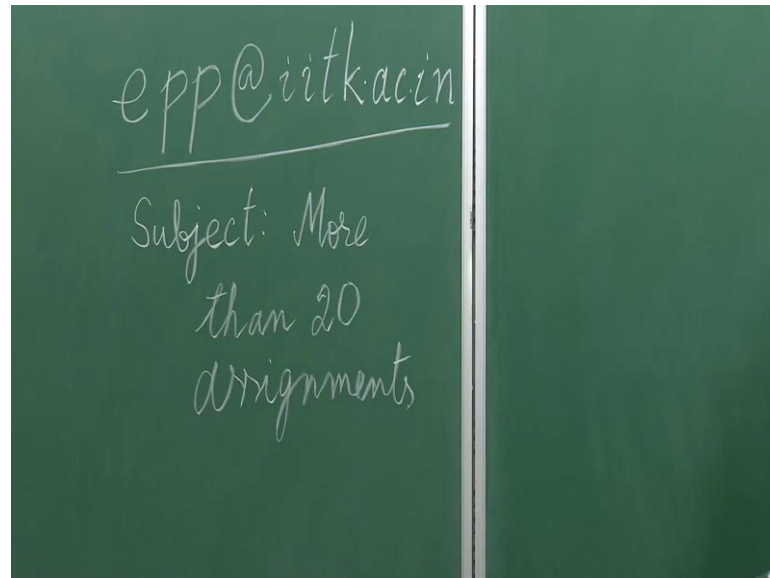 epp@iitk.ac.in
Subject: More
than 20
assignments